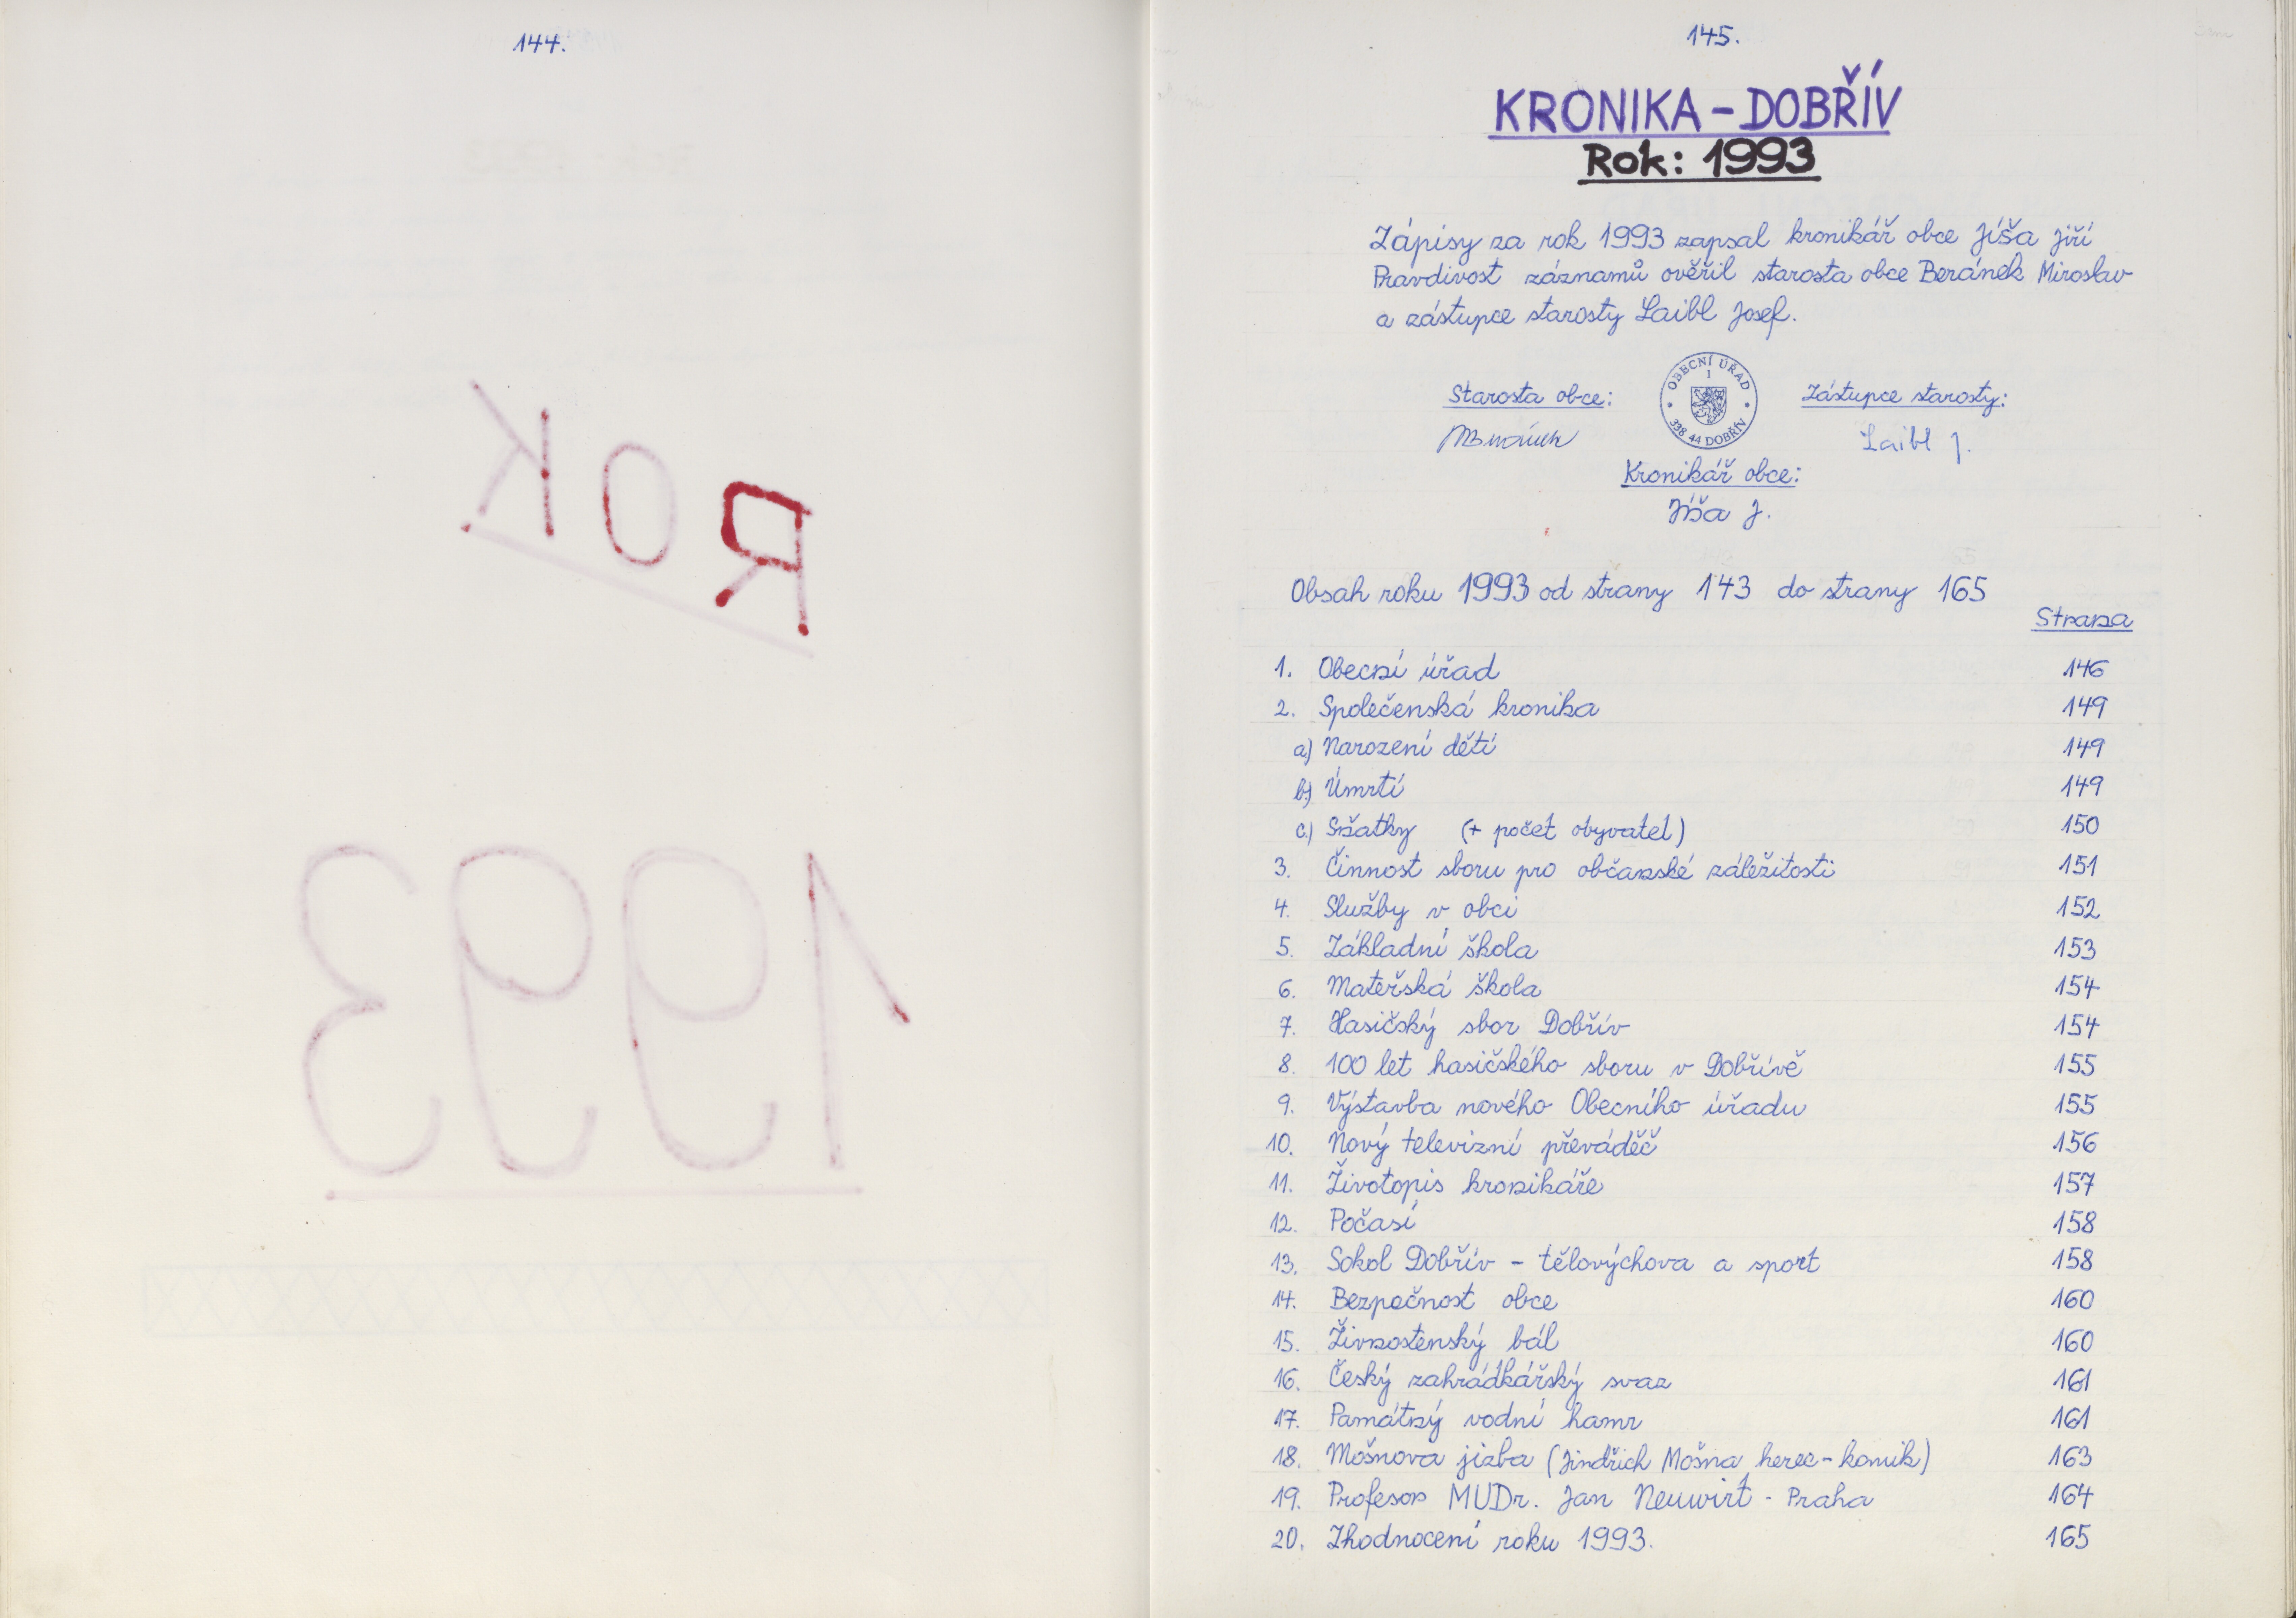 144.
145.
KRONIKA - DOBŘÍV
Rok: 1993
Zápisy za rok 1993 zapsal kronikář obce Jíša Jiří
Pravdivost záznamů ověřil starosta obce Beránek Miroslav
a zástupce starosty Laibl Josef.
Starosta obce:
OBECNÍ ÚŘAD
1
338 44 DOBŘÍV
Zástupce starosty:
Laibl J.
Kronikář obce:
Jíša J.
ROK
1993
Obsah roku 1993 od strany 143 do strany 165
Strana
1. Obecní úřad 146
2. Společenská kronika 149
a) Narození dětí 149
b) Úmrtí 149
c) Sňatky (+ počet obyvatel) 150
3. Činnost sboru pro občanské záležitosti 151
4. Služby v obci 152
5. Základní škola 153
6. Mateřská škola 154
7. Hasičský sbor Dobřív 154
8. 100 let hasičského sboru v Dobřívě 155
9. Výstavba nového Obecního úřadu 155
10. Nový televizní převáděč 156
11. Životopis kronikáře 157
12. Počasí 158
13. Sokol Dobřív - tělovýchova a sport 158
14. Bezpečnost obce 160
15. Živnostenský bál 160
16. Český zahrádkářský svaz 161
17. Památný vodní hamr 161
18. Mošnova jizba (Jindřich Mošna herec - komik) 163
19. Profesor MUDr. Jan Neuwirt - Praha 164
20. Zhodnocení roku 1993. 165